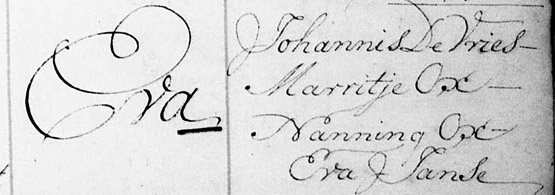 Eva
Johannis De Vries
Marritje Ox
Nanning Ox
Eva J Janse